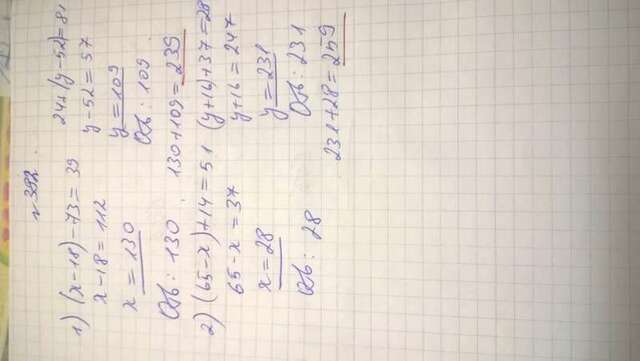 № 392.
1) (x-18)-73=39
x-18=112
x=130
Отв: 130
24+(y-52)=81
y-52=57
y=109
Отв: 109
130+109=239
2) (65-x)+14=51
65-x=37
x=28
Отв: 28
(y+16)+37=28
y+16=247
y=231
Отв: 231
231+28=259